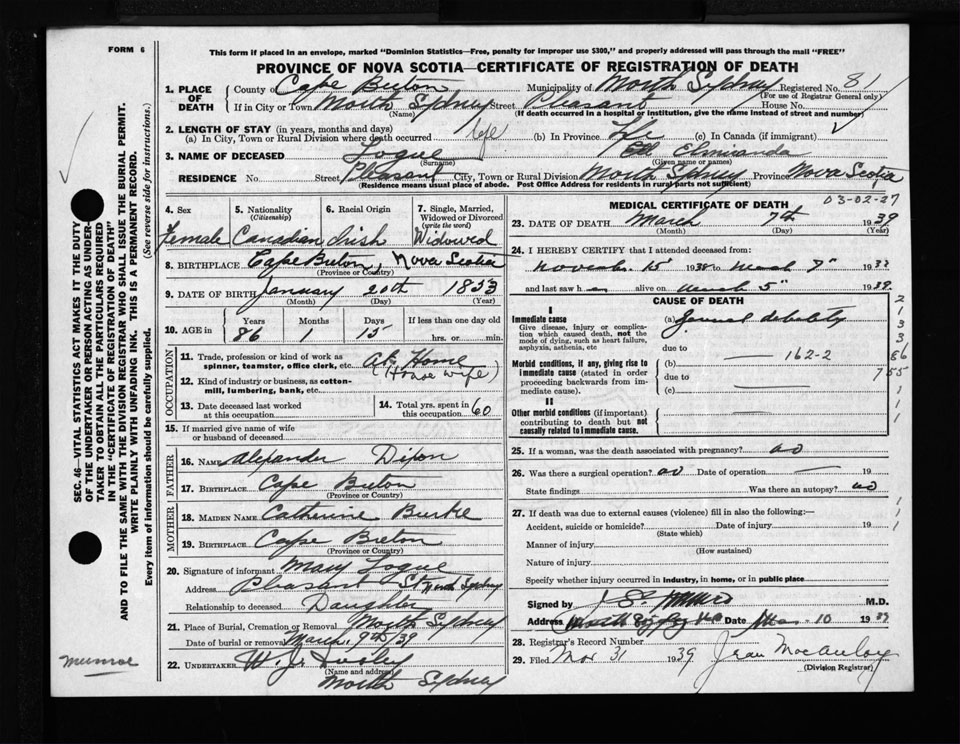 FORM 6
This form if placed in an envelope, marked "Dominion Statistics—Free, penalty for improper use $300," and properly addressed will pass through the mail "FREE"
PROVINCE OF NOVA SCOTIA—CERTIFICATE OF REGISTRATION OF DEATH
SEC. 46—VITAL STATISTICS ACT MAKES IT THE DUTY
OF THE UNDERTAKER OR PERSON ACTING AS UNDER-
TAKER TO OBTAIN ALL THE PARTICULARS REQUIRED
IN THE "CERTIFICATE OF REGISTRATION OF DEATH"
AND TO FILE THE SAME WITH THE DIVISION REGISTRAR WHO SHALL ISSUE THE BURIAL PERMIT.
WRITE PLAINLY WITH UNFADING INK. THIS IS A PERMANENT RECORD.
Every item of information should be carefully supplied. (See reverse side for instructions.)
1. PLACE OF DEATH County of Cape Breton Municipality of North Sydney Registered No. 81
(For use of Registrar General only)
If in City or Town North Sydney Street Pleasant House No.
(Name) (If death occurred in a hospital or institution, give the name instead of street and number)
2. LENGTH OF STAY (in years, months and days)
(a) In City, Town or Rural Division where death occurred life (b) In Province Life (c) In Canada (if immigrant)
3. NAME OF DECEASED Logue Elmiranda
(Surname) (Given name or names)
RESIDENCE No. Street Pleasant City, Town or Rural Division North Sydney Province Nova Scotia
(Residence means usual place of abode. Post Office Address for residents in rural parts not sufficient)
4. Sex 5. Nationality (Citizenship) 6. Racial Origin 7. Single, Married, Widowed or Divorced (write the word)
Female Canadian Irish Widowed
8. BIRTHPLACE Cape Breton, Nova Scotia
(Province or Country)
9. DATE OF BIRTH January 20th 1853
(Month) (Day) (Year)
10. AGE in Years Months Days If less than one day old
86 1 15 hrs. or min.
OCCUPATION
11. Trade, profession or kind of work as spinner, teamster, office clerk, etc. At Home
(House wife)
12. Kind of industry or business, as cotton-mill, lumbering, bank, etc.
13. Date deceased last worked at this occupation 14. Total yrs. spent in this occupation 60
15. If married give name of wife or husband of deceased
FATHER
16. NAME Alexander Dixon
17. BIRTHPLACE Cape Breton
(Province or Country)
MOTHER
18. MAIDEN NAME Catherine Burke
19. BIRTHPLACE Cape Breton
(Province or Country)
20. Signature of informant Mary Logue
Address Pleasant St North Sydney
Relationship to deceased Daughter
21. Place of Burial, Cremation or Removal North Sydney
Date of burial or removal March 9th/39
22. UNDERTAKER W. J. Dooley
(Name and address)
North Sydney
Munroe
03-02-27
MEDICAL CERTIFICATE OF DEATH
23. DATE OF DEATH March 7th 1939
(Month) (Day) (Year)
24. I HEREBY CERTIFY that I attended deceased from:
November 15 1938 to March 7" 1939
and last saw h er alive on March 5" 1939
CAUSE OF DEATH
I
Immediate cause (a) General debility
Give disease, injury or complication which caused death, not the mode of dying, such as heart failure, asphyxia, asthenia, etc
due to
Morbid conditions, if any, giving rise to immediate cause (stated in order proceeding backwards from immediate cause). (b) 162-2
due to
(c)
II
Other morbid conditions (if important) contributing to death but not causally related to immediate cause.
2
1
3
3
86
755
1
1
25. If a woman, was the death associated with pregnancy? no
26. Was there a surgical operation? no Date of operation 19
State findings Was there an autopsy? no
27. If death was due to external causes (violence) fill in also the following:—
Accident, suicide or homicide? Date of injury 19
(State which)
Manner of injury
(How sustained)
Nature of injury
Specify whether injury occurred in industry, in home, or in public place
Signed by M.D.
Address North Sydney NS Date Mar 10 1939
28. Registrar's Record Number
29. Filed Mar 31 1939 Jean MacAulay
(Division Registrar)